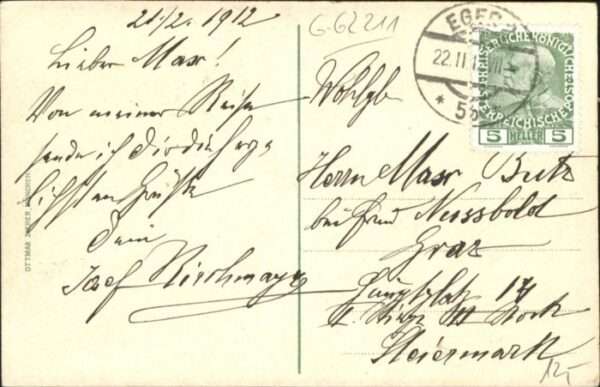 21./2. 1912
Lieber Max!
Von meiner Reise
sende ich dir die herz
lichsten Grüße
Dein
Josef Kirchmayr
G-62211
EGER
22.II.1
5
K.K. ÖSTERREICHISCHE
5 HELLER 5
Wohlgb
Herrn Max Butz
bei Frau Nussbold
Graz
Hauptplatz 14
III Stock
Steiermark
12,-
OTTMAR ZIEHER, MÜNCHEN